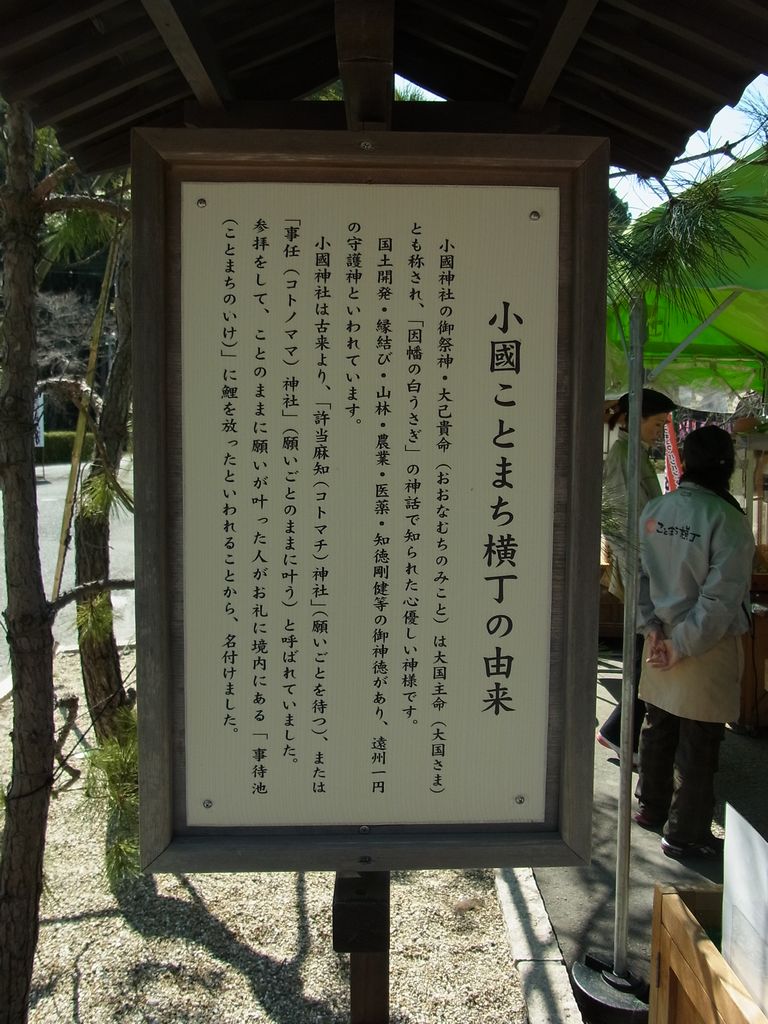 小國ことまち横丁の由来
小國神社の御祭神・大己貴命（おおなむちのみこと）は大国主命（大国さま）
とも称され、「因幡の白うさぎ」の神話で知られた心優しい神様です。
国土開発・縁結び・山林・農業・医薬・知徳剛健等の御神徳があり、遠州一円
の守護神といわれています。
小國神社は古来より、「許当麻知（コトマチ）神社」（願いごとを待つ）、または
「事任（コトノママ）神社」（願いごとのままに叶う）と呼ばれていました。
参拝をして、ことのままに願いが叶った人がお礼に境内にある「事待池
（ことまちのいけ）」に鯉を放ったといわれることから、名付けました。
ことまち横丁